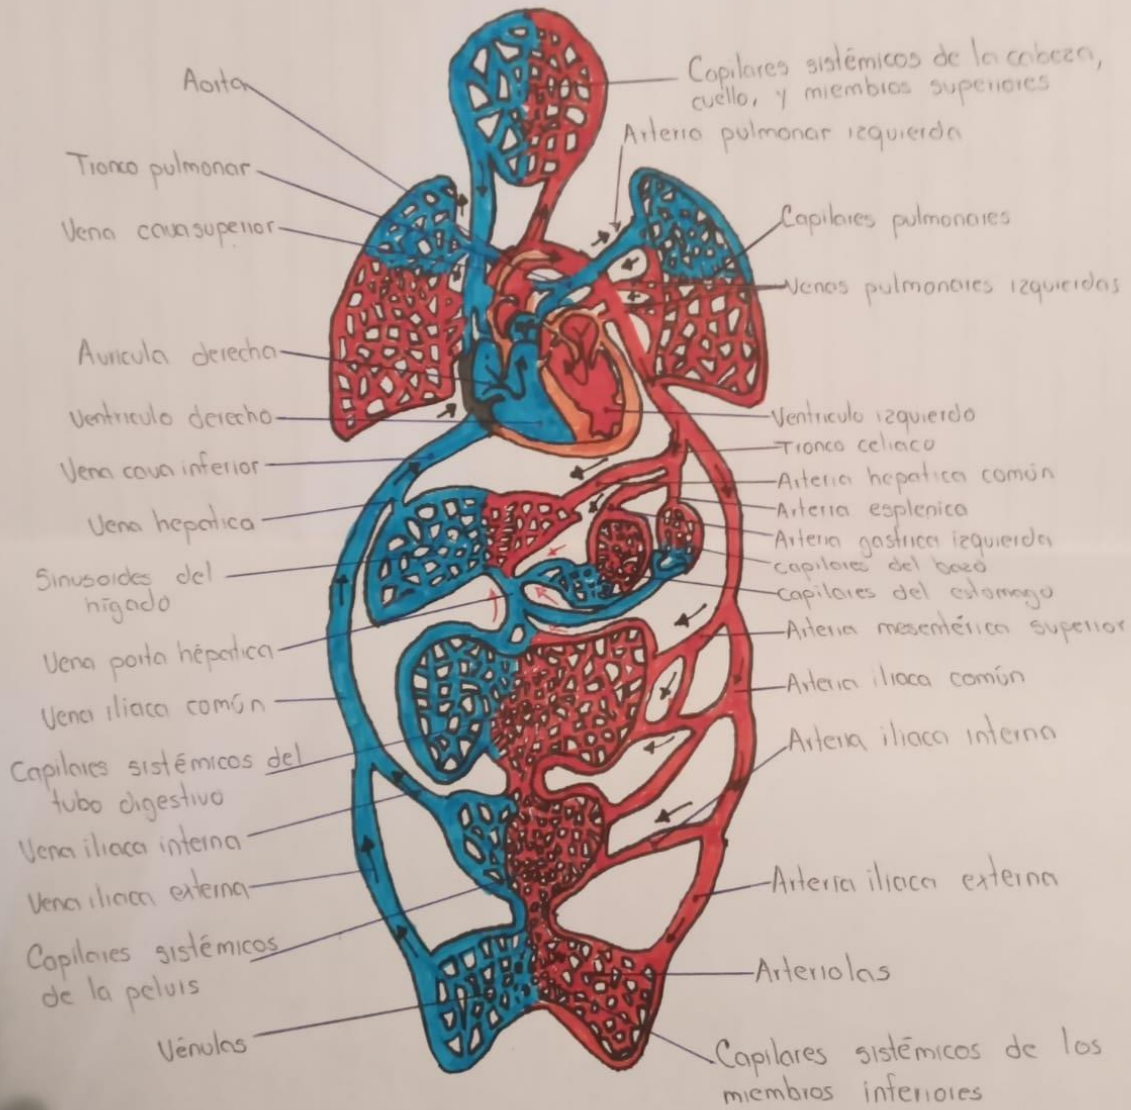 Aorta
Tronco pulmonar
Vena cava superior
Aurícula derecha
Ventriculo derecho
Vena cava inferior
Vena hepatica
Sinusoides del
hígado
Vena porta hépatica
Vena iliaca común
Capilares sistémicos del
tubo digestivo
Vena iliaca interna
Vena iliaca externa
Capilares sistémicos
de la pelvis
Vénulas
Capilares sistémicos de la cabeza,
cuello, y miembros superiores
Arteria pulmonar izquierda
Capilares pulmonares
Venas pulmonares izquierdas
Ventriculo izquierdo
Tronco celiaco
Arteria hepatica común
Arteria esplenica
Arteria gastrica izquierda
capilares del bazo
capilares del estomago
Arteria mesentérica superior
Arteria iliaca común
Arteria iliaca interna
Arteria iliaca externa
Arteriolas
Capilares sistémicos de los
miembros inferiores